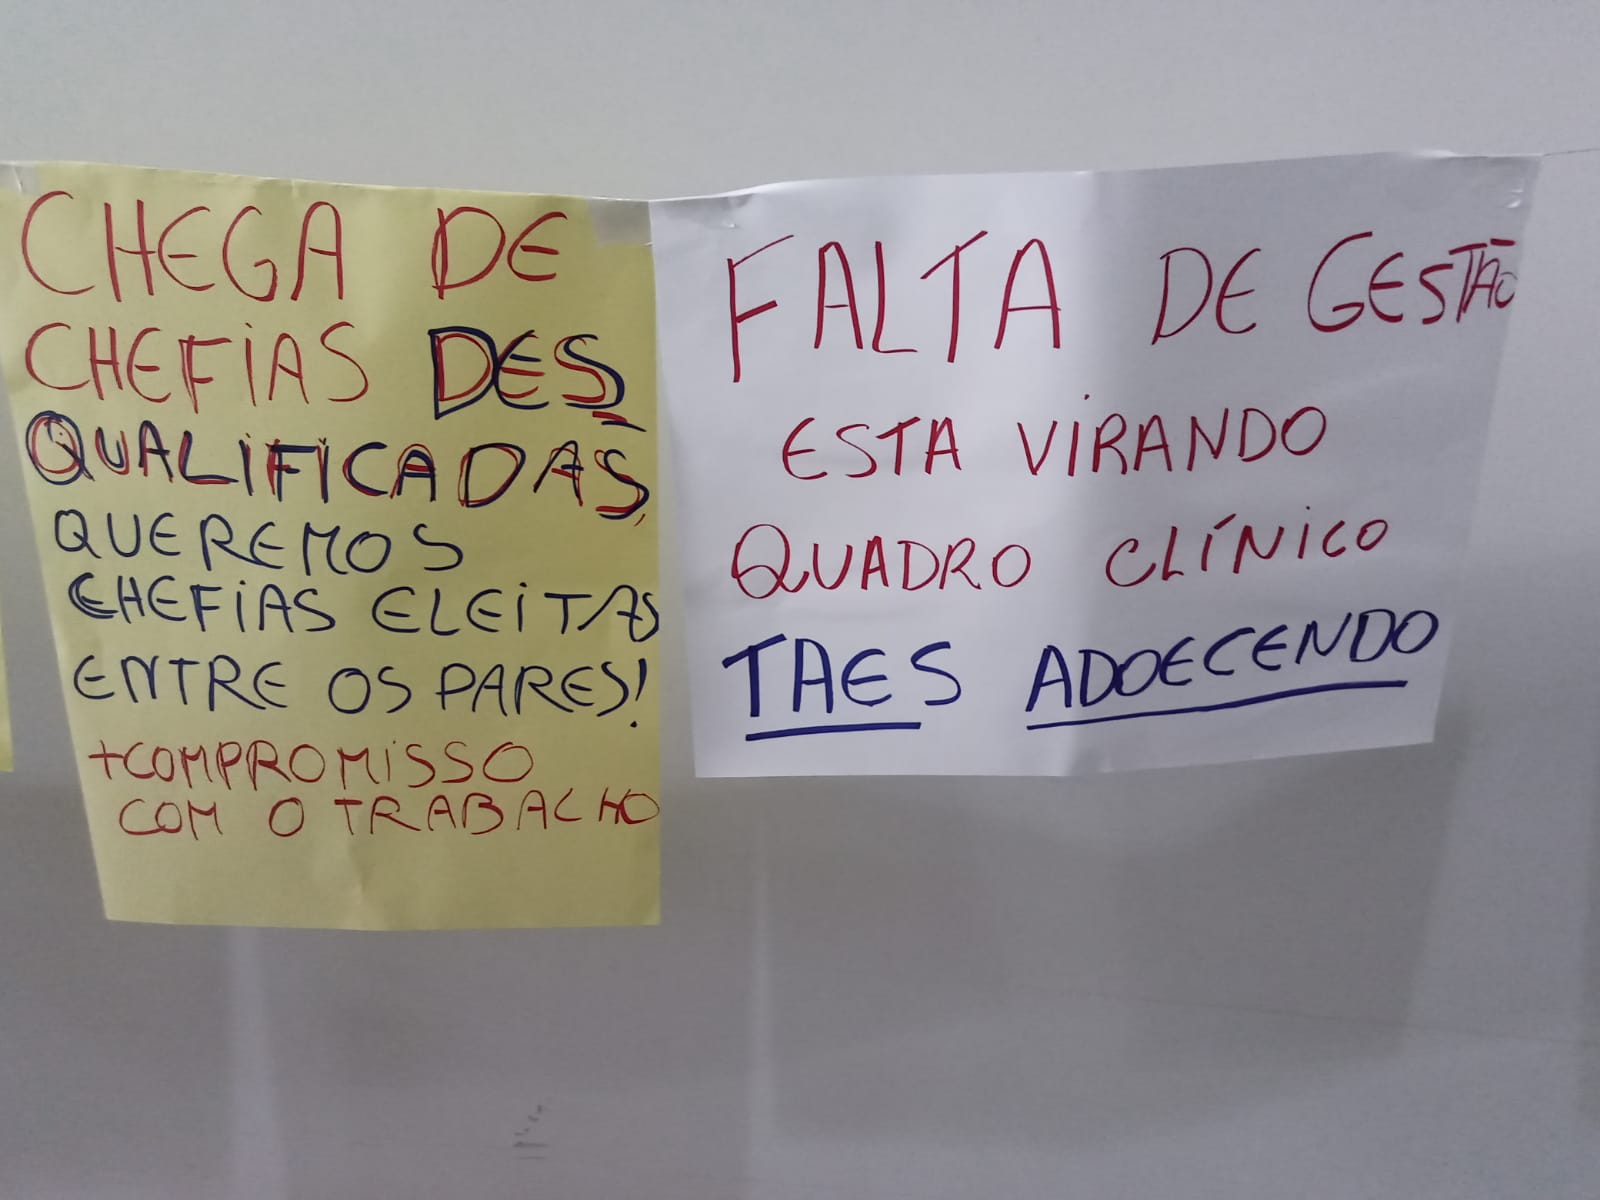 CHEGA DE
CHEFIAS DES
QUALIFICADAS,
QUEREMOS
CHEFIAS ELEITAS
ENTRE OS PARES!
+COMPROMISSO
COM O TRABALHO
FALTA DE GESTÃO
ESTA VIRANDO
QUADRO CLÍNICO
TAES ADOECENDO